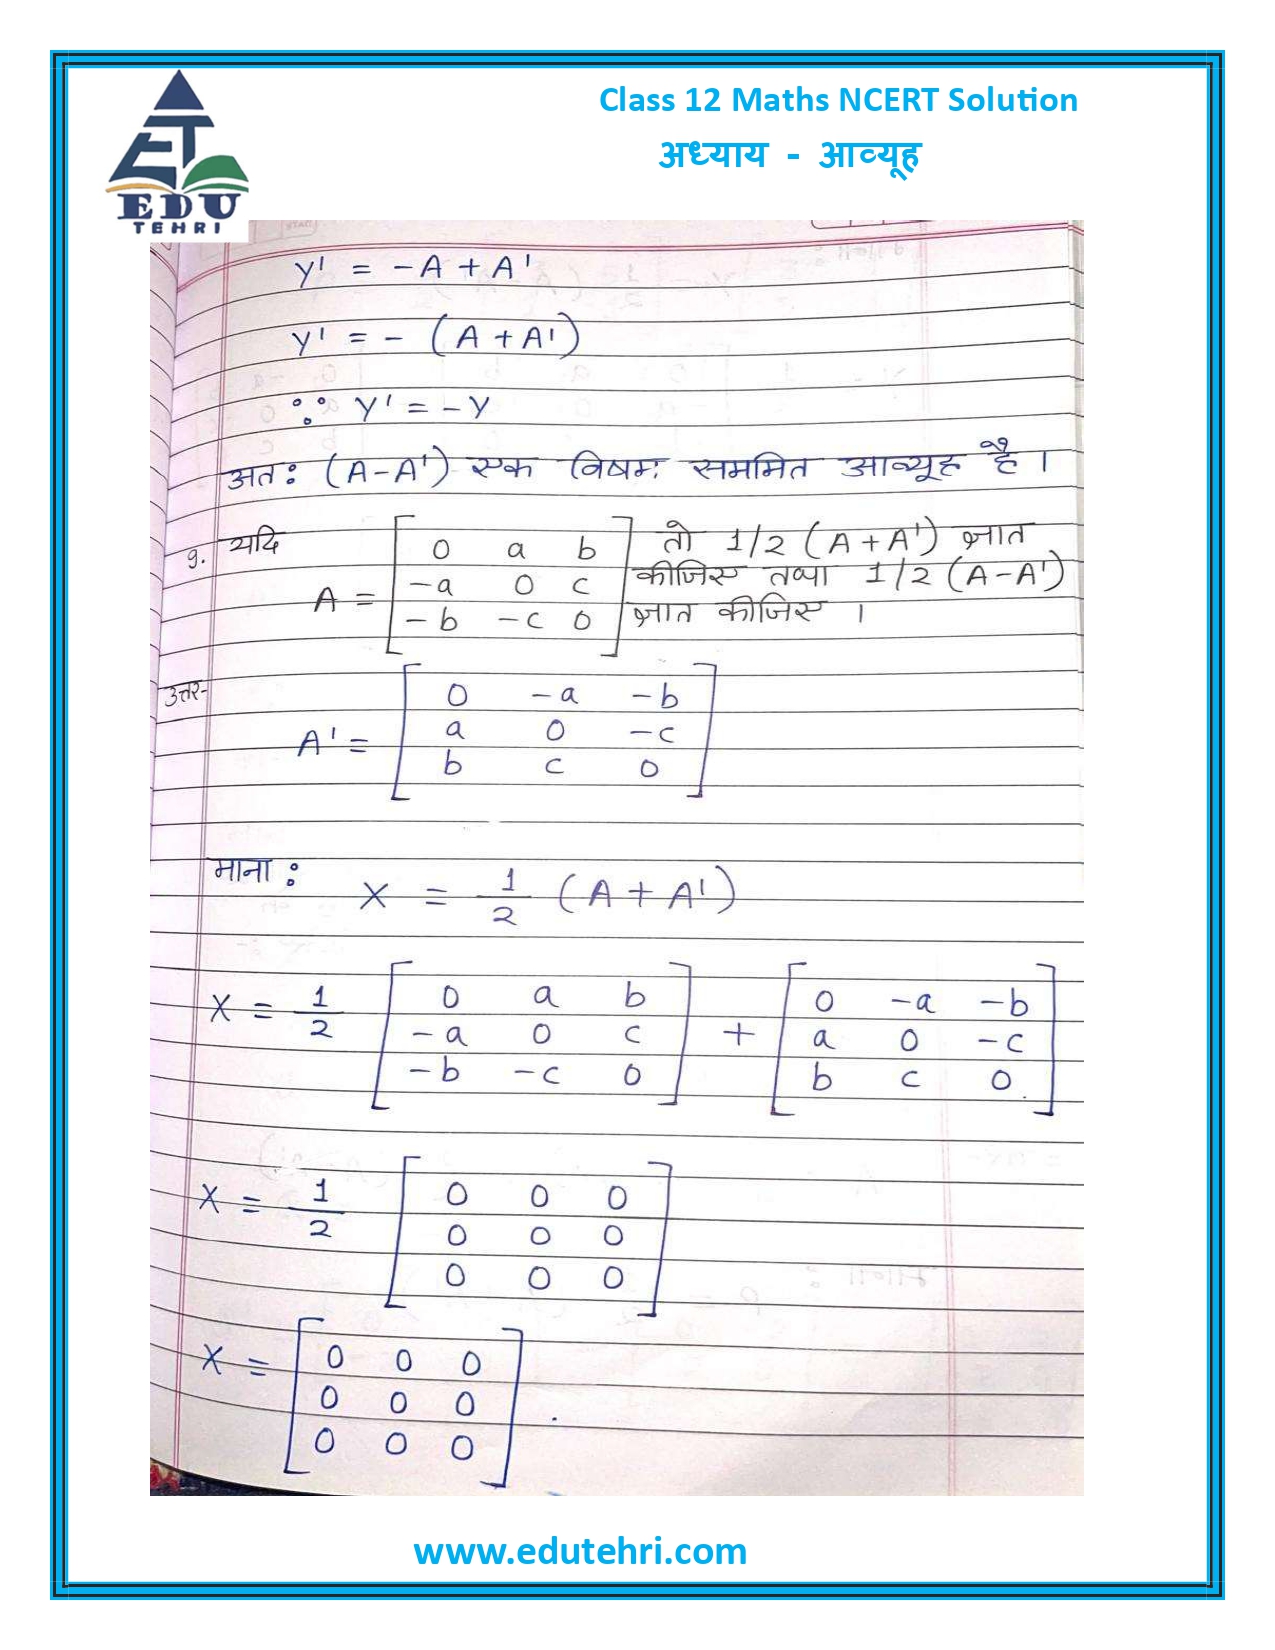 Class 12 Maths NCERT Solution
अध्याय - आव्यूह
ET
EDU
TEHRI
Y' = -A + A'
Y' = - (A + A')
∵ Y' = -Y
अतः (A-A') एक विषम सममित आव्यूह है ।
9. यदि
0 a b
-a 0 c
-b -c 0
A =
तो 1/2 (A+A') ज्ञात
कीजिए तथा 1/2 (A-A')
ज्ञात कीजिए ।
उत्तर-
A' =
0 -a -b
a 0 -c
b c 0
माना :
X = 1/2 (A + A')
X = 1/2 [0 a b] + [0 -a -b]
[-a 0 c] [a 0 -c]
[-b -c 0] [b c 0]
X = 1/2
0 0 0
0 0 0
0 0 0
X =
0 0 0
0 0 0
0 0 0
www.edutehri.com